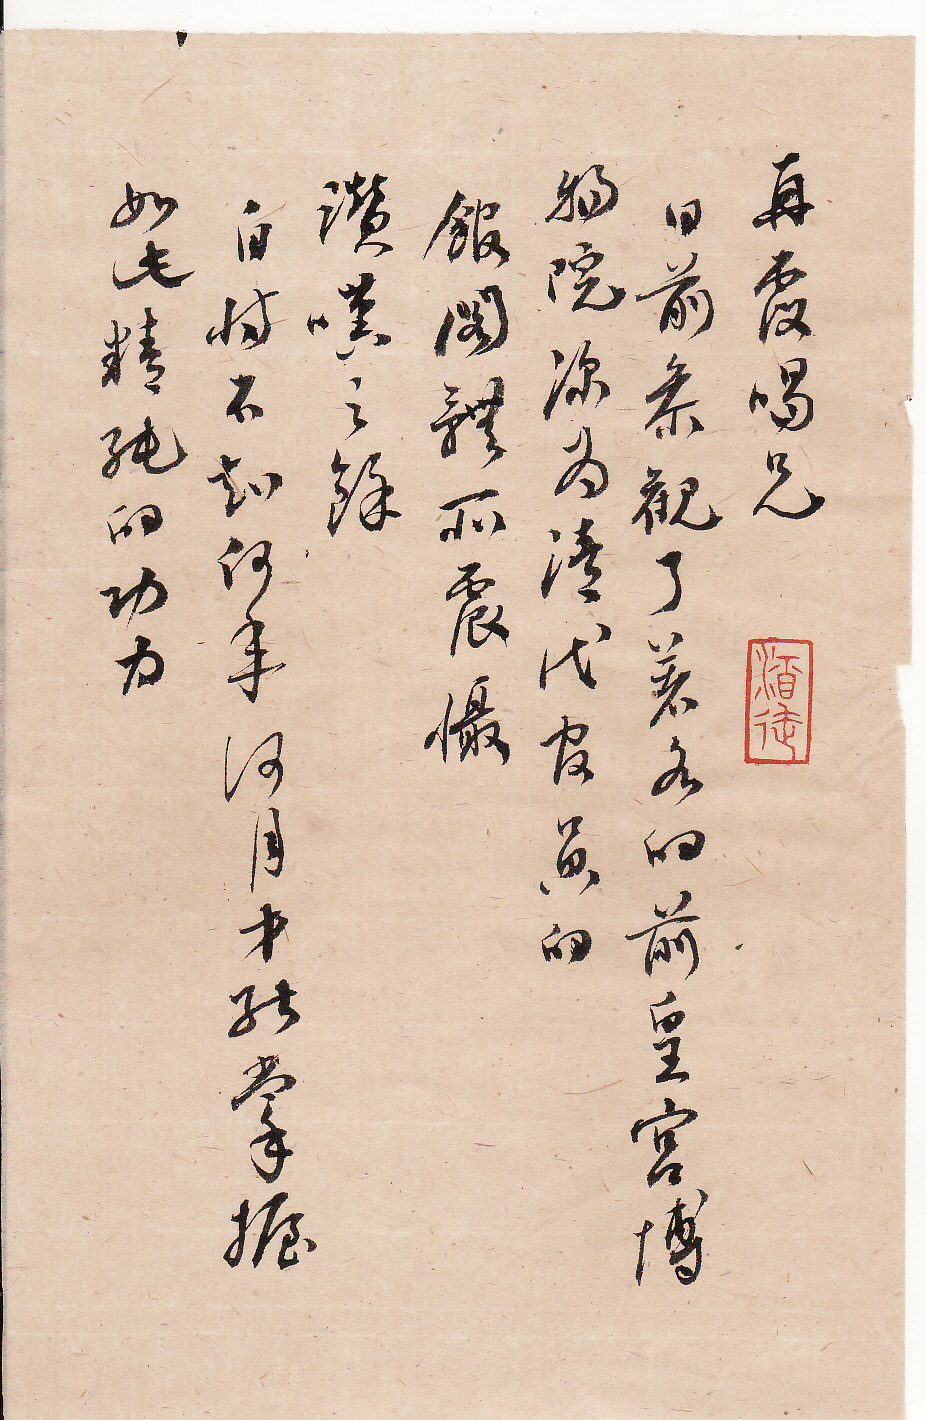 再霞喝兄
日前参觀了著名的前皇宮博
物院深為清代官員的
館閣體所震懾
讚嘆之餘
自忖不知何年何月才能掌握
如此精純的功力